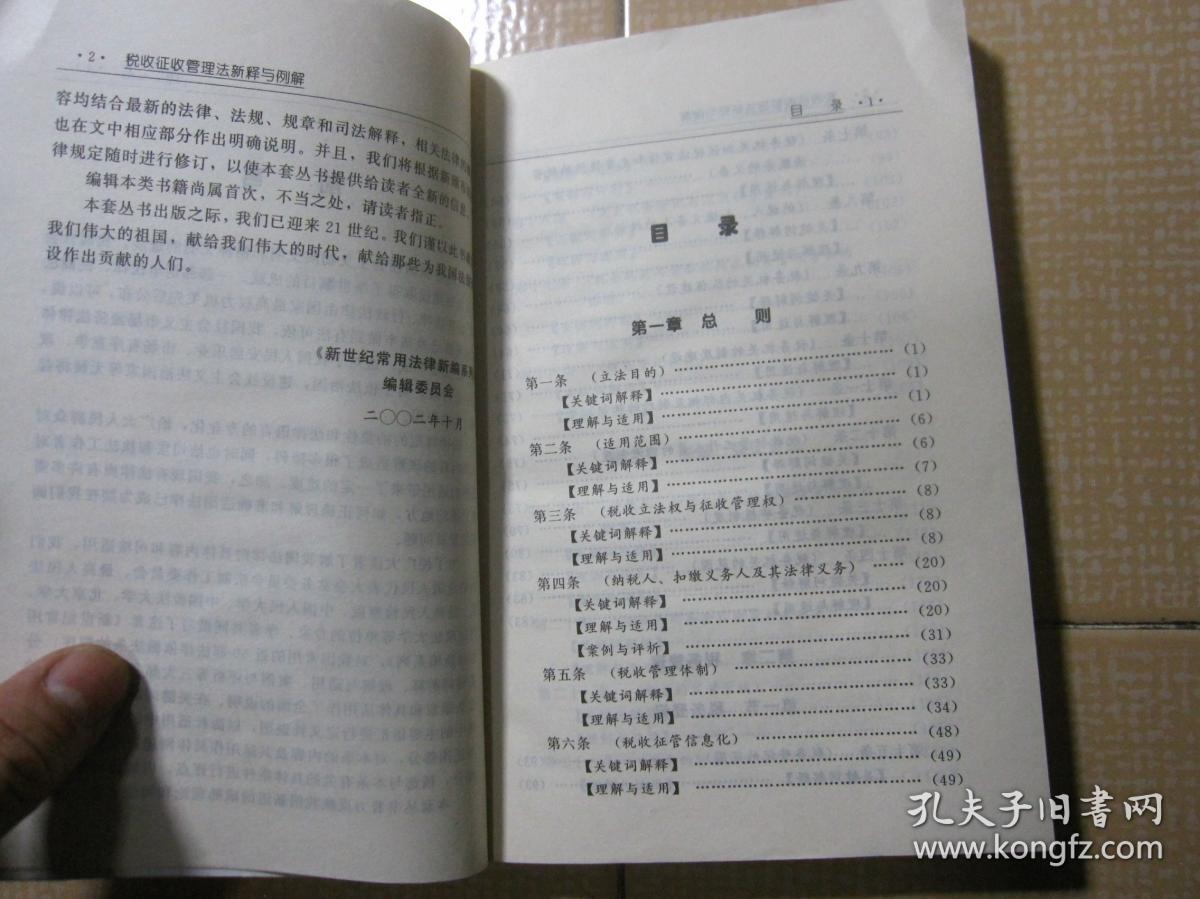 ·2· 税收征收管理法新释与例解
容均结合最新的法律、法规、规章和司法解释，相关法律
也在文中相应部分作出明确说明。并且，我们将根据新颁
律规定随时进行修订，以使本套丛书提供给读者全新的信息。
编辑本类书籍尚属首次，不当之处，请读者指正。
本套丛书出版之际，我们已迎来21世纪。我们谨以此书
我们伟大的祖国，献给我们伟大的时代，献给那些为我国法
设作出贡献的人们。
《新世纪常用法律新编系列
编辑委员会
二〇〇二年十月
目 录 ·1·
目 录
第一章 总 则
第一条 （立法目的）……（1）
【关键词解释】……（1）
【理解与适用】……（1）
第二条 （适用范围）……（6）
【关键词解释】……（6）
【理解与适用】……（7）
第三条 （税收立法权与征收管理权）……（8）
【关键词解释】……（8）
【理解与适用】……（8）
第四条 （纳税人、扣缴义务人及其法律义务）……（20）
【关键词解释】……（20）
【理解与适用】……（20）
【案例与评析】……（31）
第五条 （税收管理体制）……（33）
【关键词解释】……（33）
【理解与适用】……（34）
第六条 （税收征管信息化）……（48）
【关键词解释】……（49）
【理解与适用】……（49）
孔夫子旧书网
www.kongfz.com